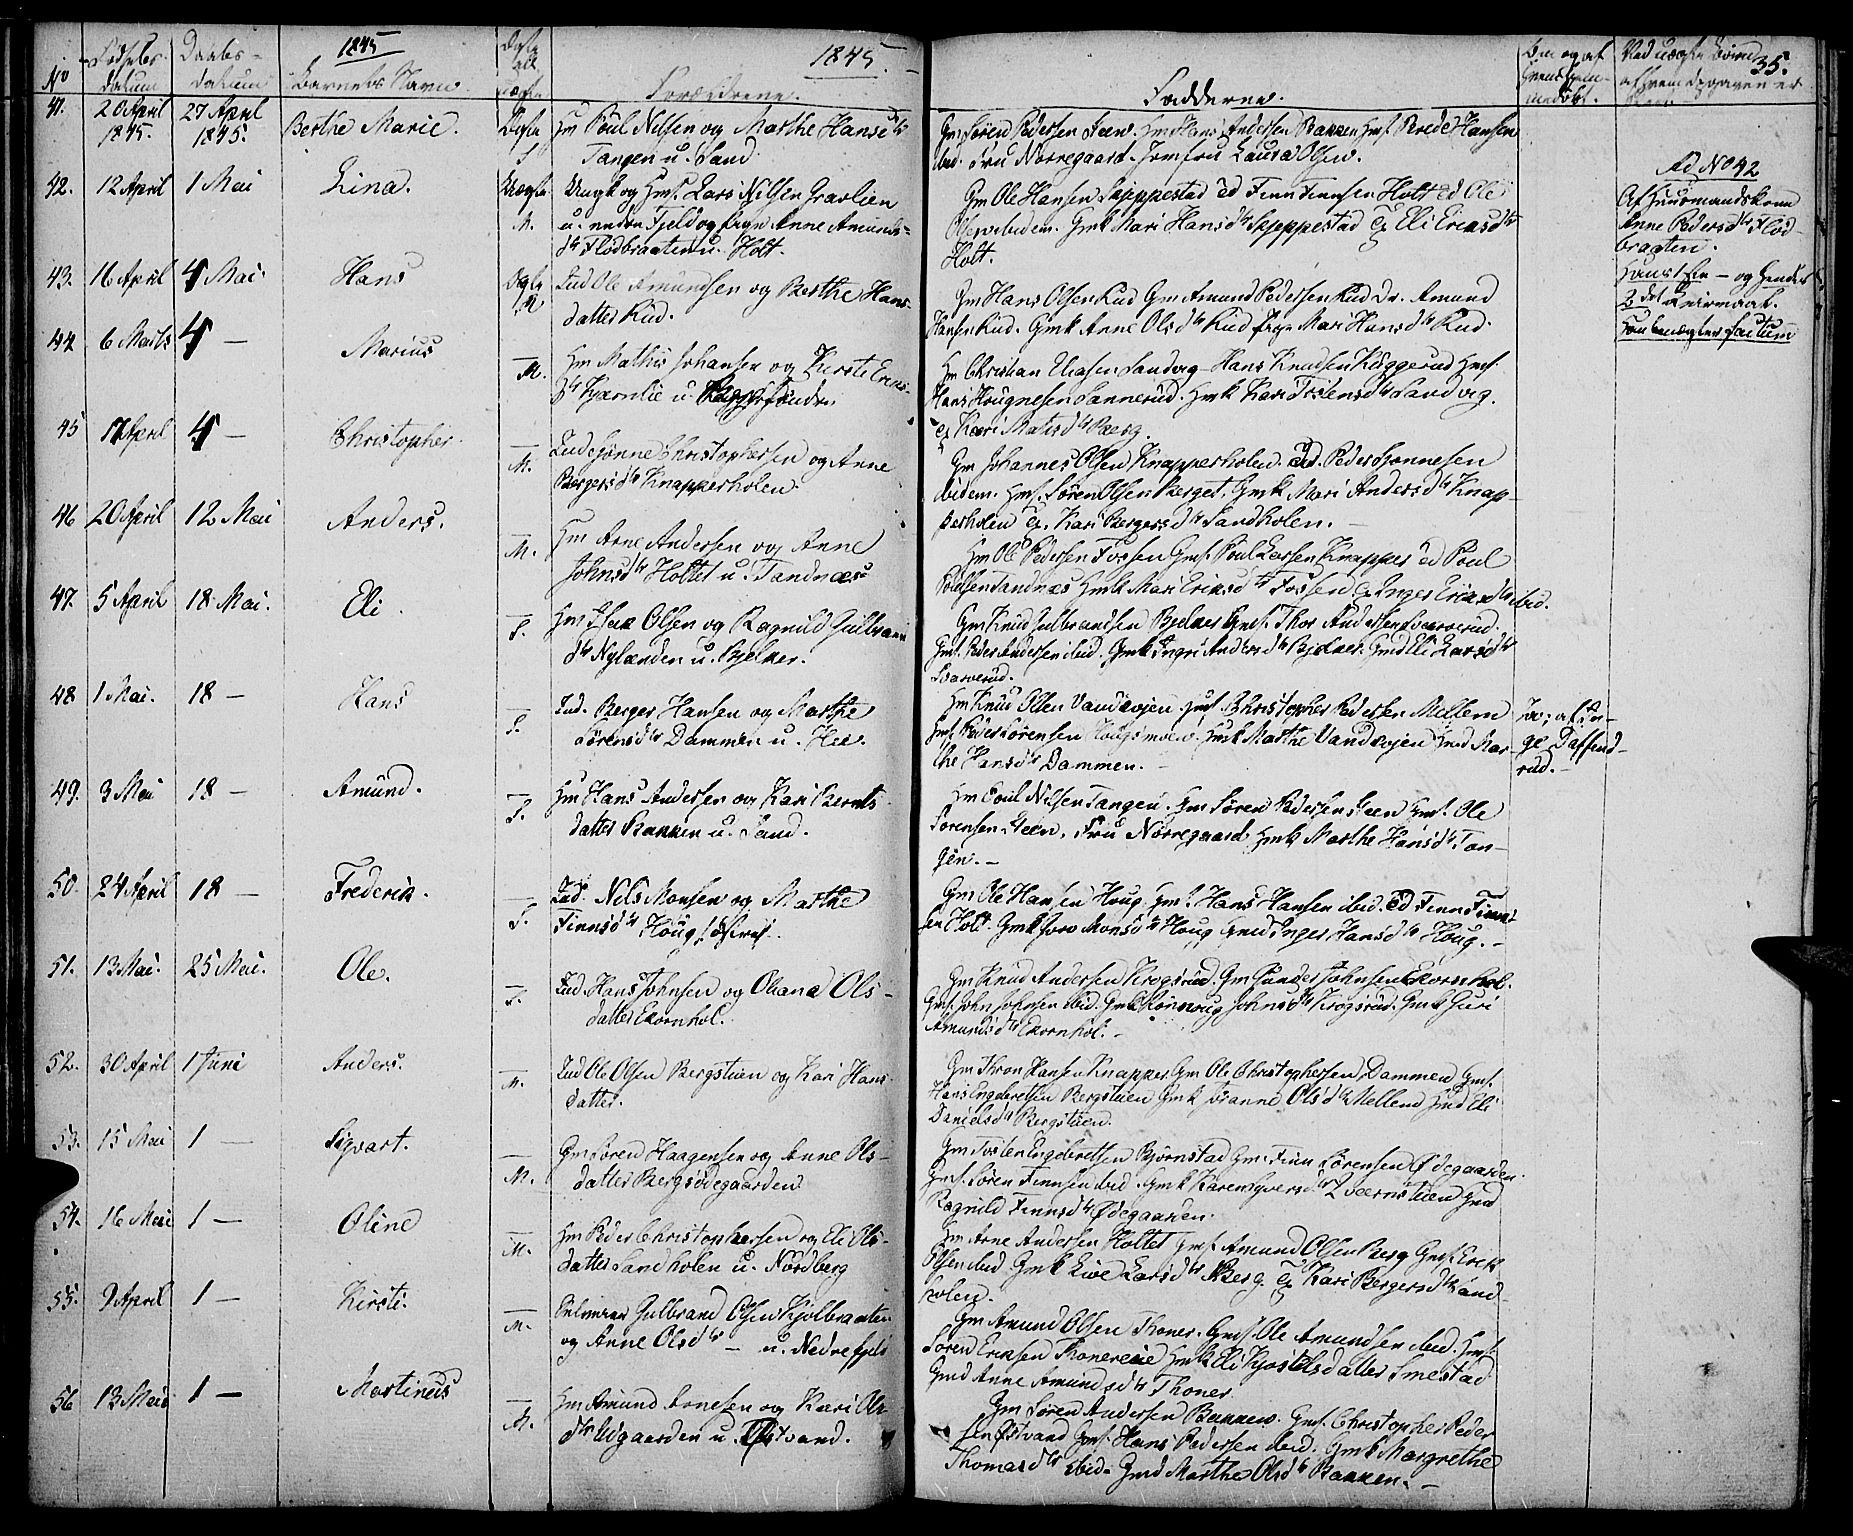 1845
1845.
35.
No
Fødsels-
datum
Daabs-
datum
Barnets Navn.
Forældrene.
Fadderne.
41.
20 April
1845.
27 April
1845.
Berthe Marie.
Ægte
Hm Poul Nilsen og Marthe Hansedtr
Tangen u. Sand.
Gm Søren Pedersen Steen. Hm Hans Andersen Bakken Hmf. Brede Hansen
ibid. Fru Nørregaard. Jomfru Laura Olsen.
42.
12 April
1 Mai
Lina.
Uægte
M.
Ungk og Hmf. Lars Nilsen Gravlien
u. nedre Fjeld og Pige Anne Amunds-
dtr Flodbraaten u. Holt.
Gm Ole Hansen Skjeppestad Ed Finn Finnsen Holt Ed Ole
Olsen ibidem. Gmk Mari Hansdtr Skjeppestad Eg Eli Eriksdtr
Holt.
Ad No 42
Af Huusmandskone
Anne Pedersdtr Flod-
braaten.
Hans 1ste og Hendes
2det Leiermaal.
Han benægter factum
43.
16 April
4 Mai.
Hans
Ægte
M
Ind Ole Amundsen og Berthe Hans-
datter Rud.
Gm Hans Olsen Rud Gm Amund Pedersen Rud Dr. Amund
Hansen Rud. Gmk Anne Olsdtr Rud Pige Mari Hansdtr Rud.
44
6 Marts
4 —
Marius
— M.
Hm Mathis Johansen og Kirsti Eriks-
dtr Kjærnlie u.
Hm Christian Hansen Sandvig Hans Knudsen Kaggerud Hmf.
Hans Haugnesen Sannerud. Hmk Kari Tostensdtr Sandvig.
Eg Kari Matisdtr Berg.
45
17 April
4 —
Christopher.
— M.
Ind Hønne Christophersen og Anne
Børgersdtr Knapperholen.
Gm Johannes Olsen Knapperholen. Ed. Peder Hønnesen
ibidem. Hmf. Søren Olsen Berget. Gmk Mari Andersdtr Knap-
perholen Eg. Kari Børgersdtr Sandholen. —
46
20 April
12 Mai
Anders.
— M.
Hm Arne Andersen og Anne
Johnsdtr Holtet u. Tandnæs
Hm Ole Pedersen Fossen Gmf. Poul Larsen Knapper Ed Poul
Poulsen Tandnæs Hmk Mari Eriksdtr Fossen Eg Inger Eriksdtr ibid.
47.
5 April
18 Mai.
Eli.
— S.
Hm Isak Olsen og Ragnild Gulbrand
dtr Nylænden u. Bjelker.
Gm Knud Gulbrandsen Bjelker Gmf. Thor Andersen Svarverud.
Gmf. Peder Andersen ibid. Gmk Ingri Andersdtr Bjelker. Gmd Eli Larsdtr
Svarverud.
48
1 Mai.
18 —
Hans
— S.
Ind. Berger Hansen og Marthe
Sørensdtr Dammen u. Hee.
Hm Knud Olsen Vandsvejen Hmf. Christopher Pedersen Mellem
Hmf. Peder Sørensen Hougsmoen. Hmk Marthe Vandsvejen Hmd Mar-
the Hansdtr Dammen. —
Jo; af In-
ge Daffind-
rud. —
49.
3 Mai
18 —
Amund.
— S.
Hm Hans Andersen og Kari Bernts
datter Bakken u. Sand.
Hm Poul Nilsen Tangen. Hm Søren Pedersen Steen Hmf. Ole
Sørensen Steen. Fru Nørregaard. Hmk Marthe Hansdtr Tan-
gen. —
50.
24 April
18 —
Frederik.
— S.
Ind. Nils Monsen og Marthe
Finnsdtr Houg
Gm Ole Hansen Houg. Gmf. Hans Hansen ibid. Ed Finn Finn-
sen Holt. Gmk Joro Monsdtr Houg Gmd Inger Hansdtr Houg. —
51.
13 Mai.
25 Mai.
Ole.
— S.
Ind. Hans Johnsen og Oleana Ols-
datter Ekornhol.
Gm Knud Andersen Krogsrud. Gm Gunder Johnsen Ekornhol.
Gmf. John Johnsen ibid. Gmk Rønnoug Johnsdtr Krogsrud. Gmk Guri
Amundsdtr Ekornhol. —
52.
30 April
1 Juni
Anders.
— M.
Ind Ole Olsen Bergstuen og Kari Hans
datter.
Gm Thron Hansen Knapper Gm Ole Christophersen Dammen Gmf.
Hans Engebretsen Bergstuen Gmk Johanne Olsdtr Mellem Hmd Eli
Danielsdtr Bergstuen.
53.
15 Mai
1 —
Sigvart.
— M.
Gm Søren Haagensen og Anne Ols-
datter Bergsødegaarden
Gm Tosten Engebretsen Bjørnstad Gm Finn Sørensen Ødegaarden.
Gmf. Søren Finnsen ibid. Gmk Karen Syversdtr Qværnstuen Gmd
Ragnild Finnsdtr Ødegaarden.
54.
16 Mai
1 —
Oline
— M.
Hm Peder Christophersen og Eli Ols-
datter Sandholen u. Nordberg
Hm Arne Andersen Holtet Gmf. Amund Olsen Berg Gmf. Erik
Olsen ibid. Gmk Live Larsdtr Berg. Eg Kari Børgersdtr Sand-
holen.
55.
9 April
1 —
Kirsti.
— M.
Selveier Gulbrand Olsen Kjølbraaten
og Anne Olsdtr — u. Nedrefjeld
Gm Amund Olsen Thoner. Gmf. Ole Amundsen ibid. Hmf.
Søren Eriksen Thonereie Hmk Eli Kjostelsdatter Smestad
Gmd Anne Amundsdtr Thoner.
56
13 Mai
1 —
Martinus
— M.
Hm Amund Arnesen og Kari Ols
dtr Udgaarden u. Østvand.
Gm Søren Andersen Bakken. Gmf. Christopher Peder-
sen Østvand Gmf. Hans Pedersen ibid. Gmk Margrethe
Thomasdtr ibid. Gmd Marthe Olsdtr Bakken. —